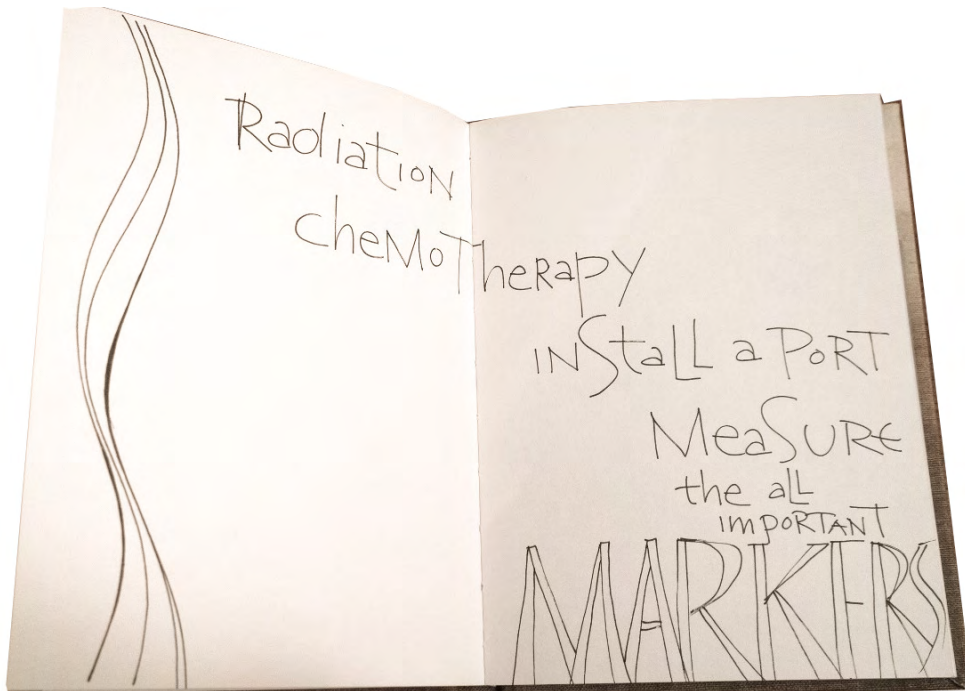 Radiation
cheMoTherapy
inStaLL a PoRT
MeaSURE
the aLL
imPORTANT
MARKERS